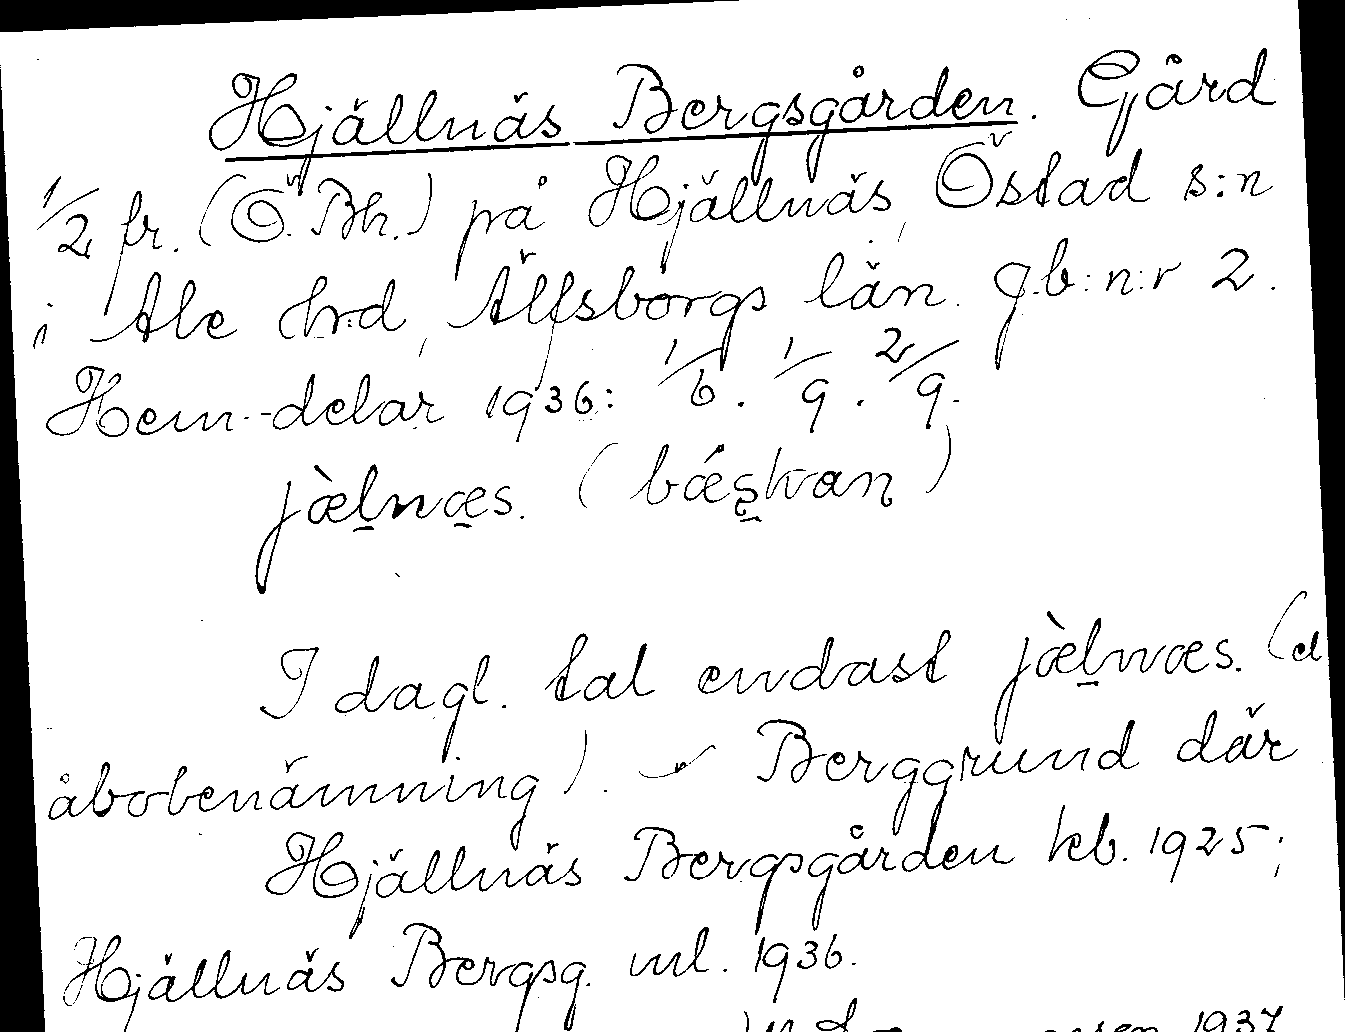 Hjällnäs Bergsgården. Gård
1/2 fr. (Ö. Bh.) på Hjällnäs, Östad s:n
i Ale hrd, Älfsborgs län. g.b:n:r 2.
Hem.-delar 1936: 1/6. 1/9. 2/9.
jæ̀l̠næ̠s. (bǽs̠kvan)
I dagl. tal endast jæ̀l̠næs. (d
åbobenämning). Berggrund där
Hjällnäs Bergsgården kb. 1925;
Hjällnäs Bergsg. ml. 1936.
1937